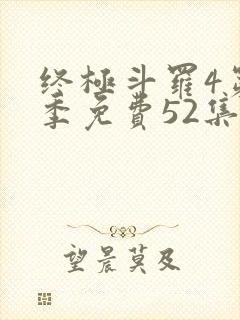 终極斗羅4第
季免費52集
望晨莫及